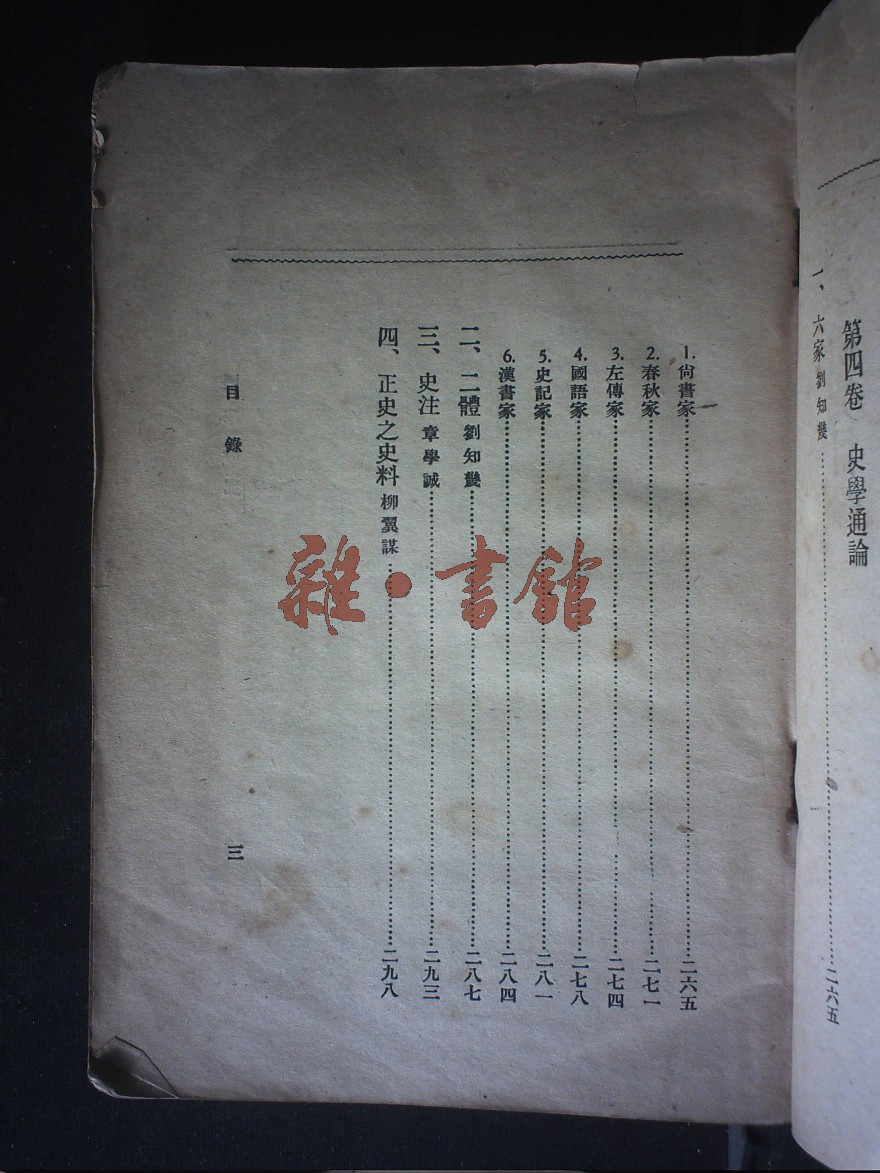 第四卷 史學通論
一、六家 劉知幾……二六五
1. 尙書家……二六五
2. 春秋家……二七一
3. 左傳家……二七四
4. 國語家……二七八
5. 史記家……二八一
6. 漢書家……二八四
二、二體 劉知幾……二八七
三、史注 章學誠……二九三
四、正史之史料 柳翼謀……二九八
目錄
三
雜·書館